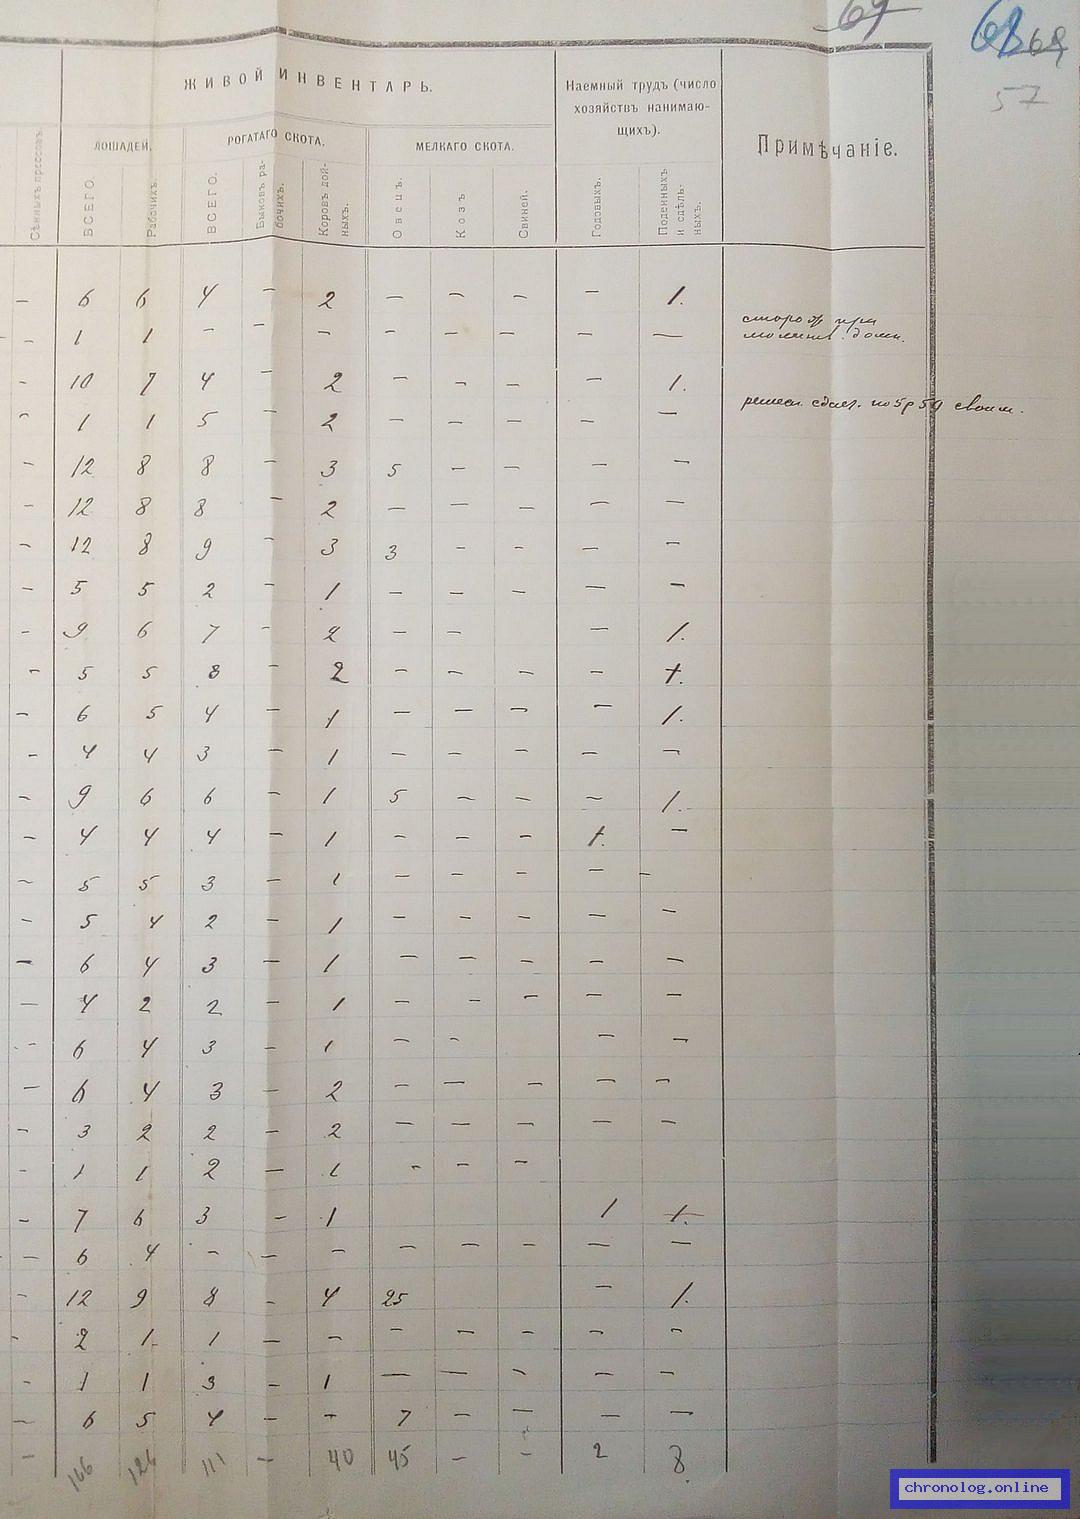 67
68 69
57
ЖИВОЙ ИНВЕНТАРЬ.
Наемный трудъ (число хозяйствъ нанимаю-щихъ).
Примѣчаніе.
ЛОШАДЕЙ.
РОГАТАГО СКОТА.
МЕЛКАГО СКОТА.
Сѣнныхъ прессовъ
ВСЕГО
Рабочихъ.
ВСЕГО.
Быковъ ра-бочихъ.
Коровъ дой-ныхъ.
Овецъ.
Козъ
Свиней.
Годовыхъ.
Поденныхъ и сдѣль-ныхъ.
– 6 6 4 – 2 – – – – 1.
сторож при
– 1 1 – – – – – – – – дома.
– 10 7 4 – 2 – – – – 1.
сдает. по 5р 50 своим.
– 1 1 5 – 2 – – – – –
– 12 8 8 – 3 5 – – – –
– 12 8 8 – 2 – – – – –
– 12 8 9 – 3 3 – – – –
– 5 5 2 – 1 – – – – –
– 9 6 7 – 2 – – – 1.
– 5 5 8 – 2 – – – – 1.
– 6 5 4 – 1 – – – – 1.
– 4 4 3 – 1 – – – – –
– 9 6 6 – 1 5 – – – 1.
– 4 4 4 – 1 – – – 1. –
– 5 5 3 – 1 – – – – –
– 5 4 2 – 1 – – – – –
– 6 4 3 – 1 – – – – –
– 4 2 2 – 1 – – – – –
– 6 4 3 – 1 – – – –
– 6 4 3 – 2 – – – – –
– 3 2 2 – 2 – – – – –
– 1 1 2 – 1 – – –
– 7 6 3 – 1 1 1.
– 6 4 – – – – – – – –
– 12 9 8 – 4 25 – 1.
– 2 1 1 – – – – – – –
– 1 1 3 – 1 – – – – –
– 6 5 4 – – 7 – – – –
– 166 126 111 – 40 45 – – 2 8
chronolog.online